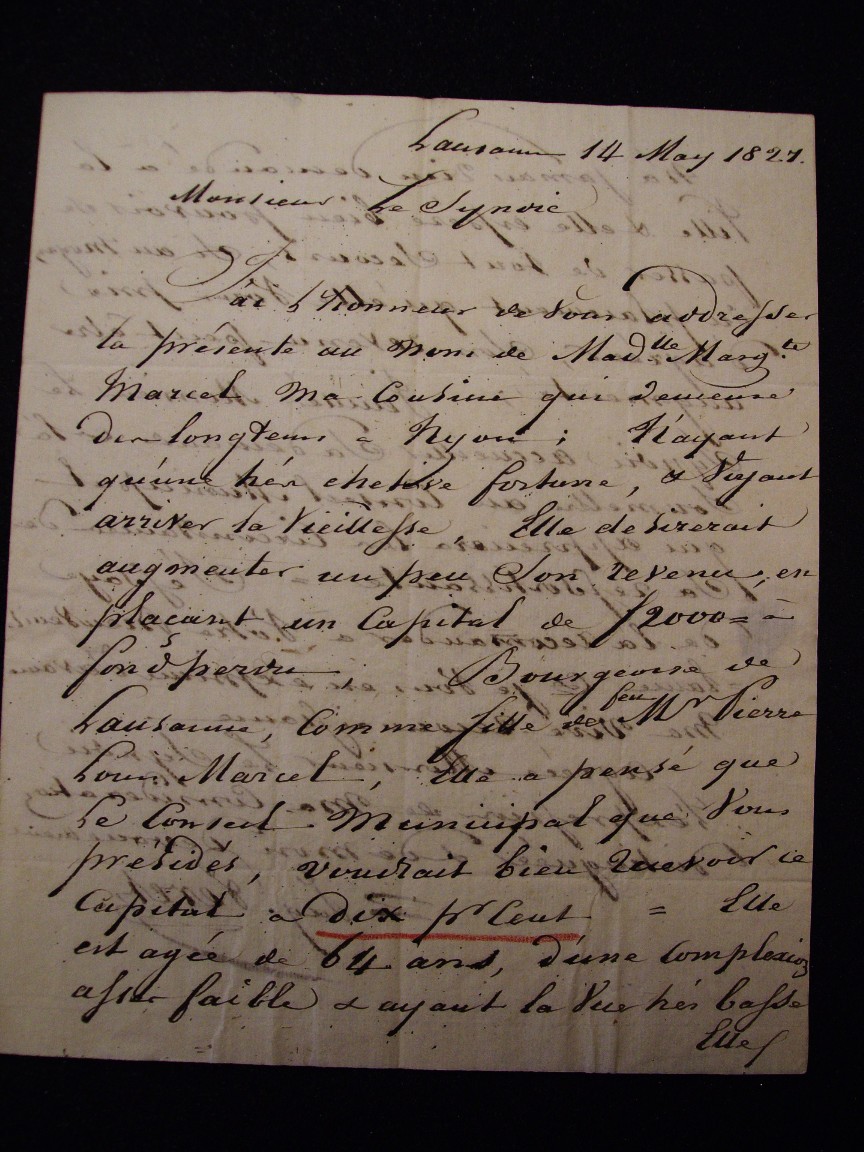 Lausanne 14 May 1827.
Monsieur Le Syndic
J'ai l'honneur de vous addresser
la présente au nom de Madlle Margte
Marcel ma Cousine qui demeure
des longtems a Nyon ; N'ayant
qu'une très chetive fortune, & Voyant
arriver la Vieillesse, Elle desireroit
augmenter un peu Son revenu, en
plaçant un Capital de f 2000 = à
fonds perdu, Bourgeoise de
Lausanne, Comme fille de feu Mr Pierre
Louis Marcel, Elle a pensé que
Le Conseil Municipal que Vous
présidés, voudrait bien recevoir ce
Capital a dix pr Cent = Elle
est agée de 64 ans, d'une Complexion
assés faible & ayant la Vue très basse
Elle